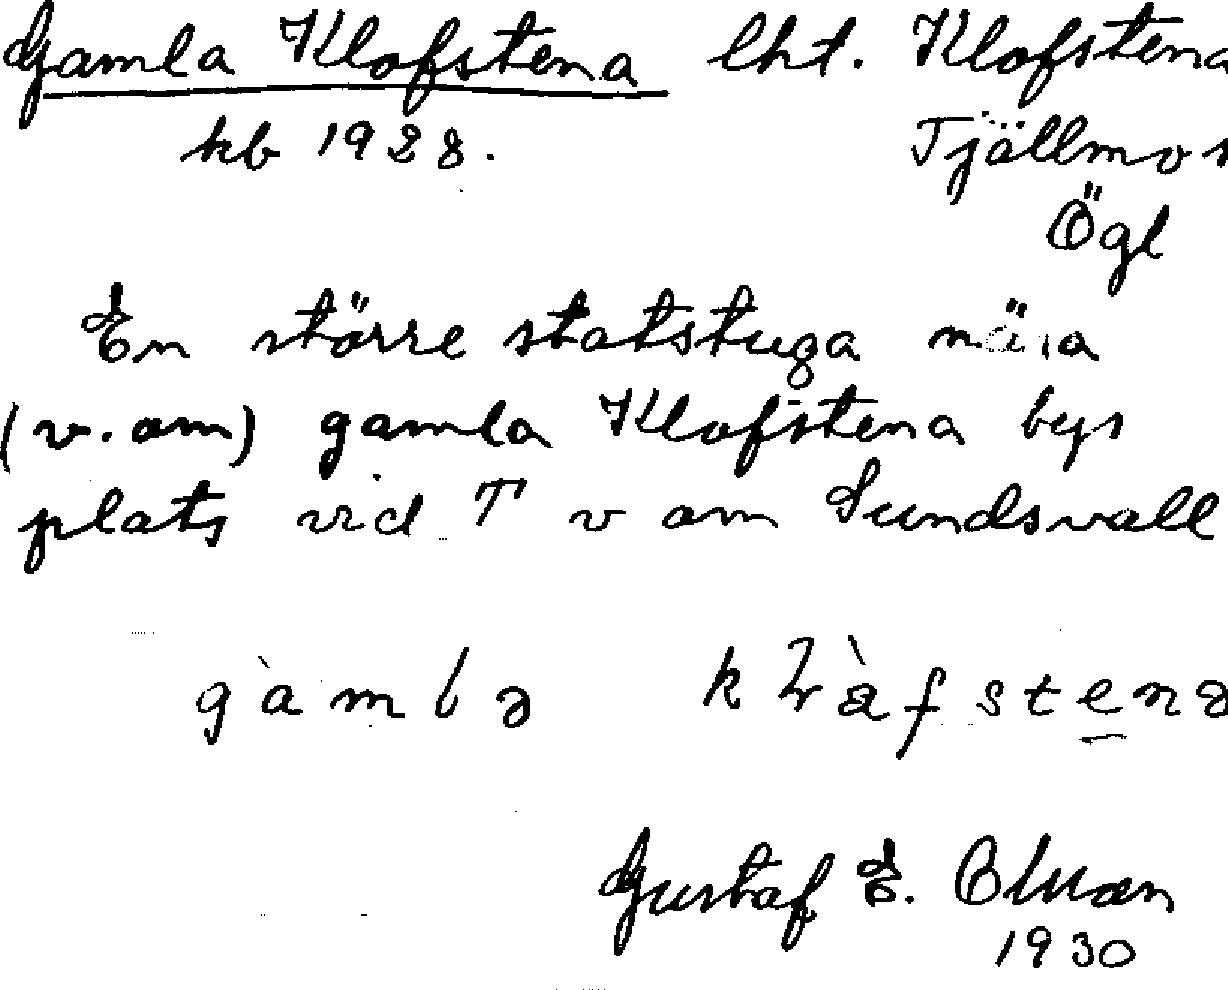 Gamla Klofstena lht. Klofstena
kb 1928. Tjällmos
Ögl
En större statstuga nära
(v. om) gamla Klofstena bys
plats vid T v om Sundsvall
gàmla klàfstena
Gustaf E.
1930